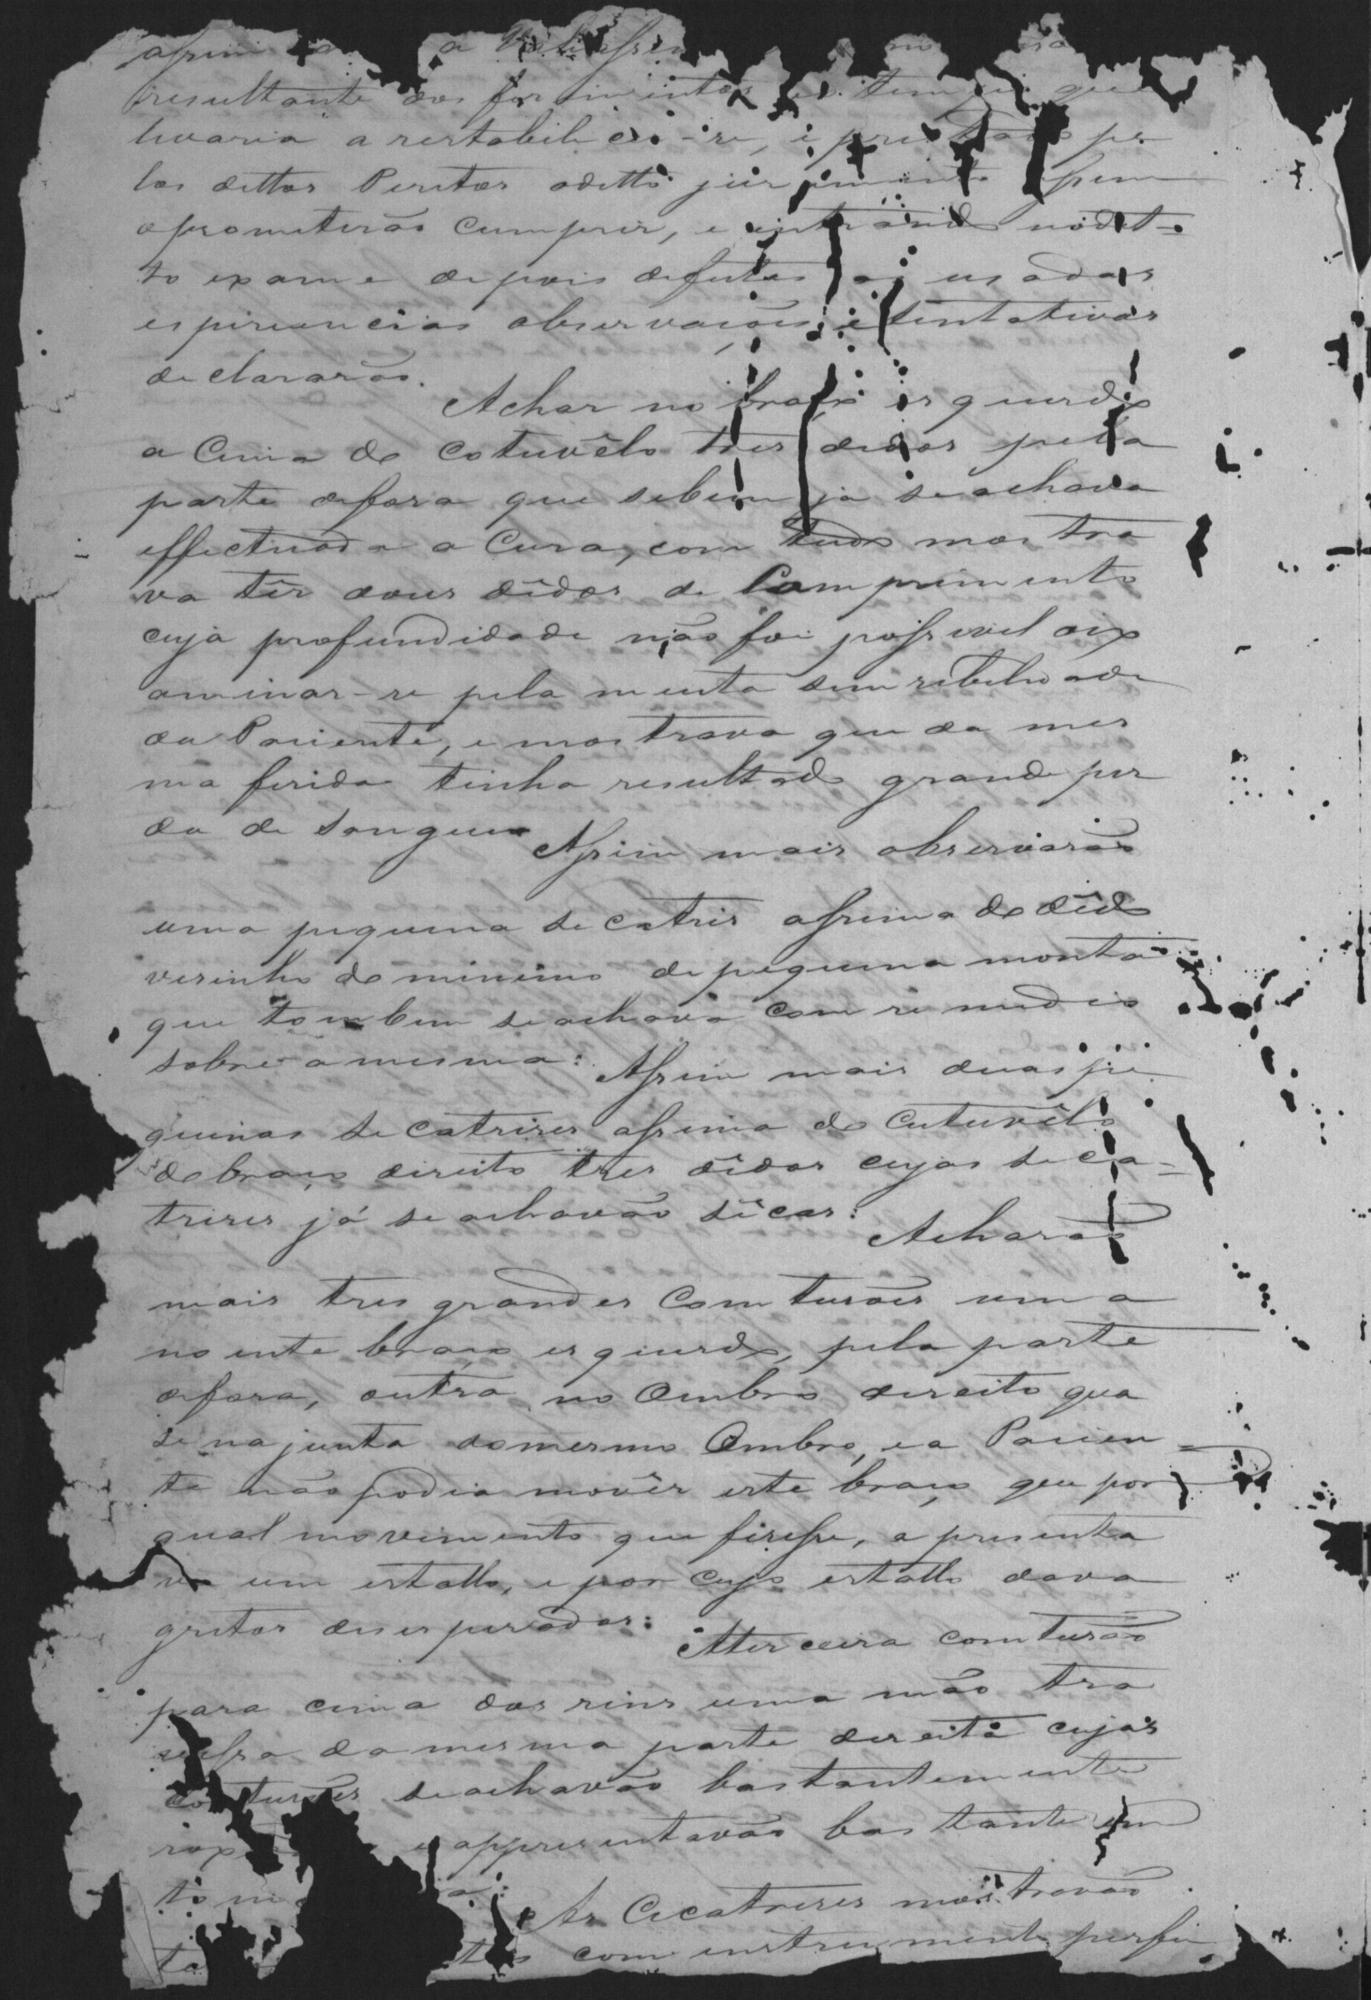 resultante dos fer imentos e tempo que
levaria a restabile cer-se, e pres tado pe
los dittos Peritos oditto jur amento assim
oprometerão cumprir, e entrando nodit-
to exame depois defeitas as uzadas
espiriencias observacões, e tentativas
declararão. Achar no braço esquerdo
a Cima do cotuvêlo tres dedos pela
parte defora que sebem ja seachava
effectuada a Cura, com tudo mostra
va têr dous dêdos de Comprimento
cuja profundidade não foi possivel aix
aminar-se pela muita sem sebelid ade
da Paciente, e mostrava que da mes
ma ferida tinha resultado grande per
da de sangue Assim mais observarão
uma piquena secatris assima do dêdo
vesinho do minimo de pequena monta
que tombem seachava com re medio
sobre a mesma: Assim mais duas pe
quenas secatrises assima do Cutuvêlo
do braço direito tres dêdos cujas seca=
trises já se achavão sêcas: Acharão
mais tres grandes Comtusões uma
no ante braço esquerdo, pela parte
defora, outra no Ombro direito qua
se na junta domesmo Ombro, e a Pacien=
te não podia movêr este braço que por
qual movimento que fizesse, a presenta
va um estallo, e por cujo estallo dava
gritos deses perados: Aterceira comtusão
para cima dos rins uma mão tra
vessa da mesma parte direita cujas
Contusões seachavão bastantemente
e appresentavão bastante em
As Cecatrises mostravão
com enstrumento perfu